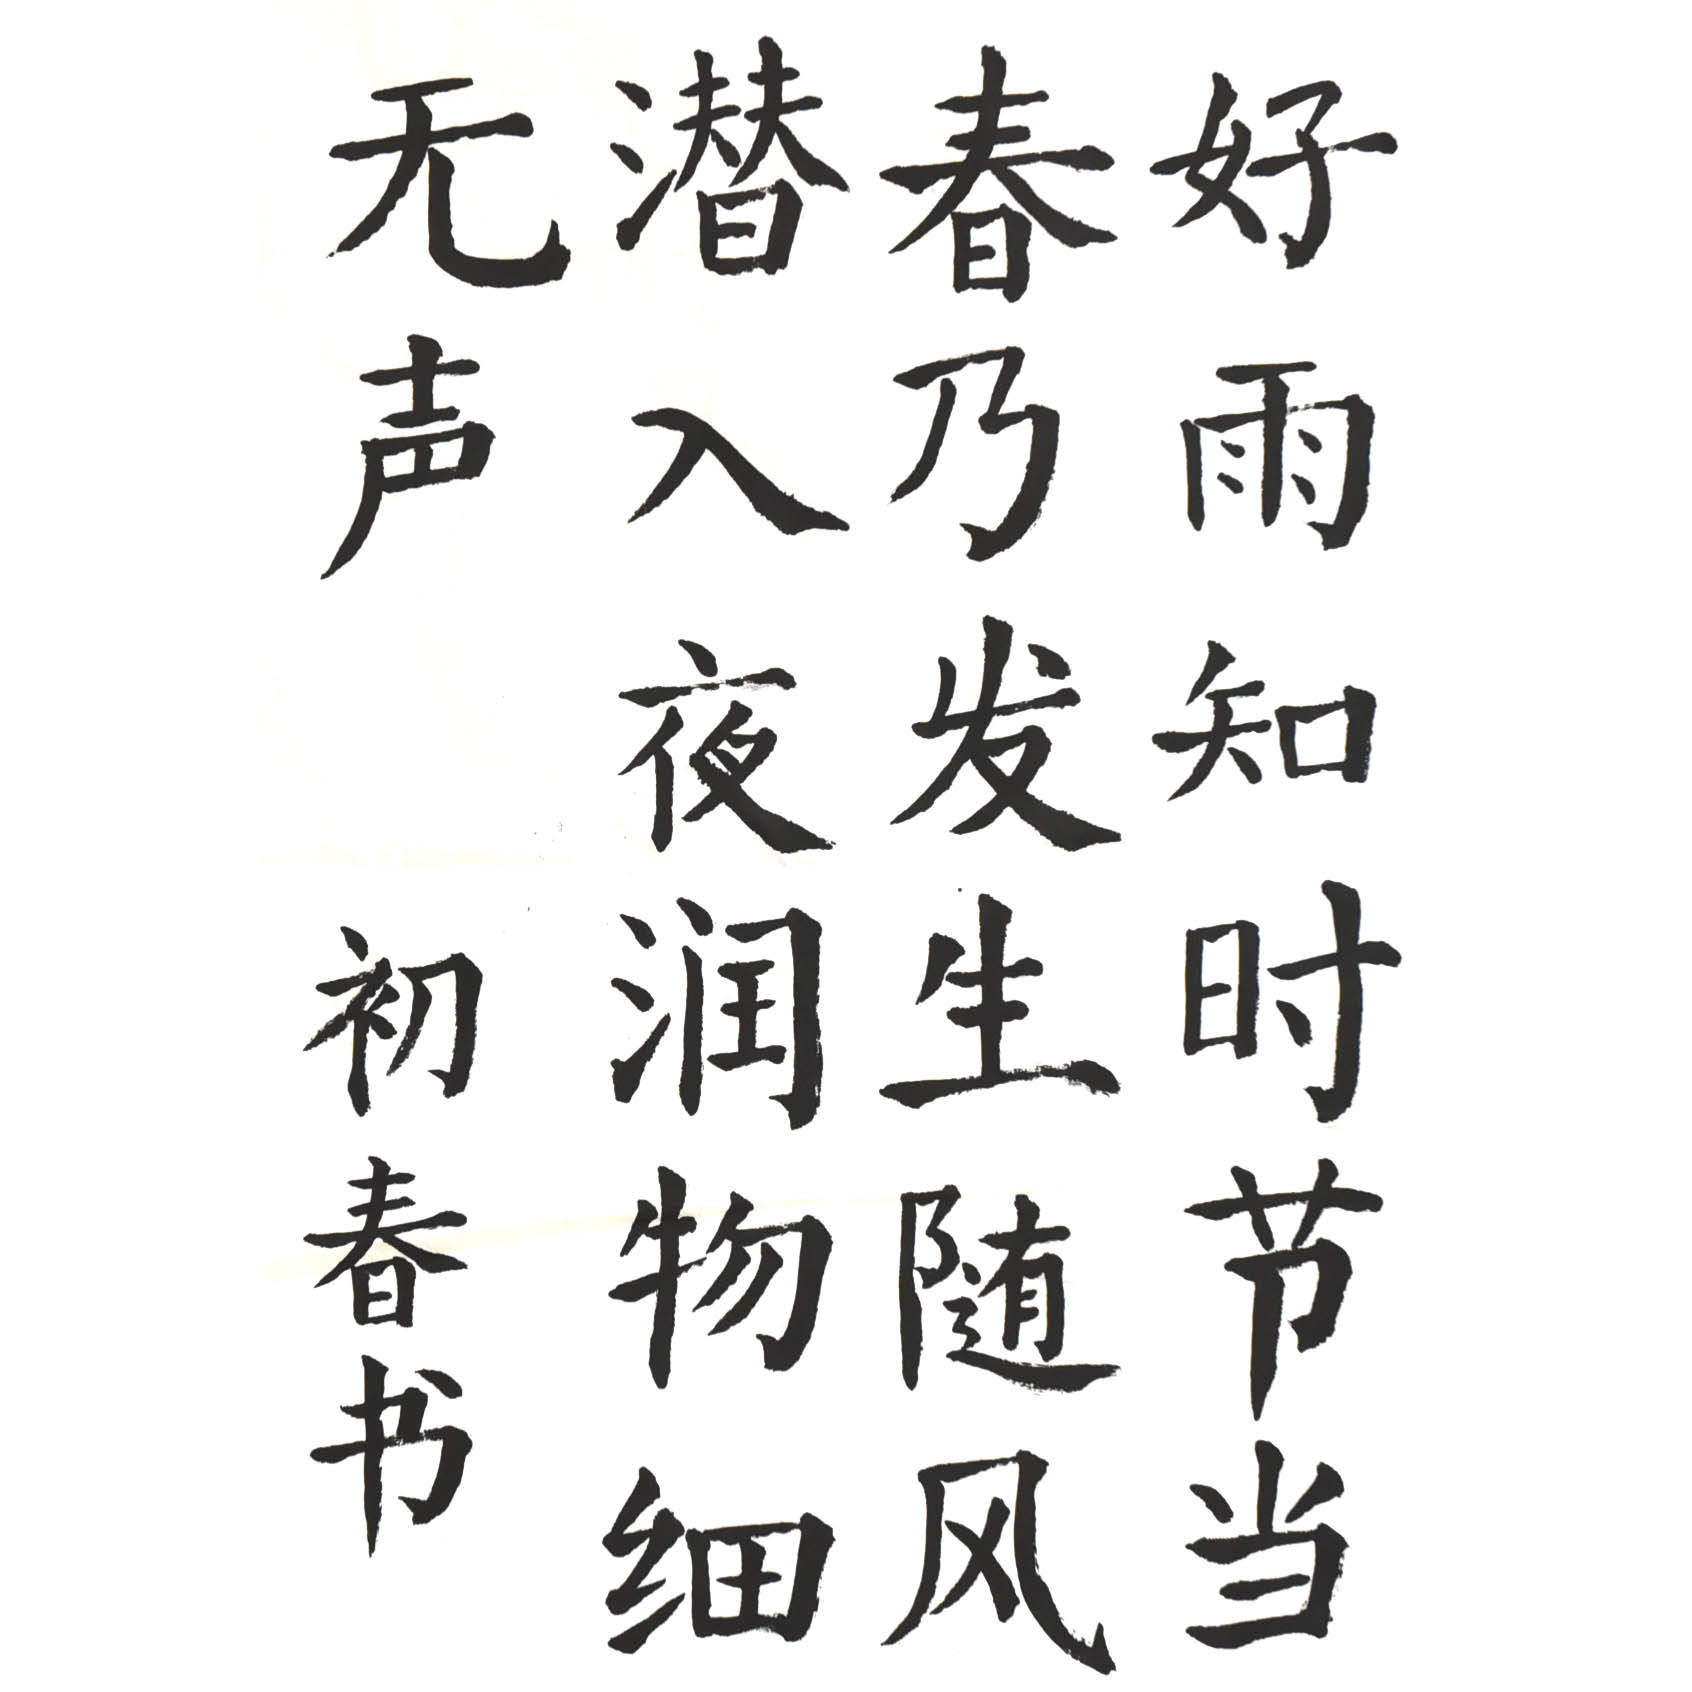 好雨知时节当
春乃发生随风
潜入夜润物细
无声 初春书